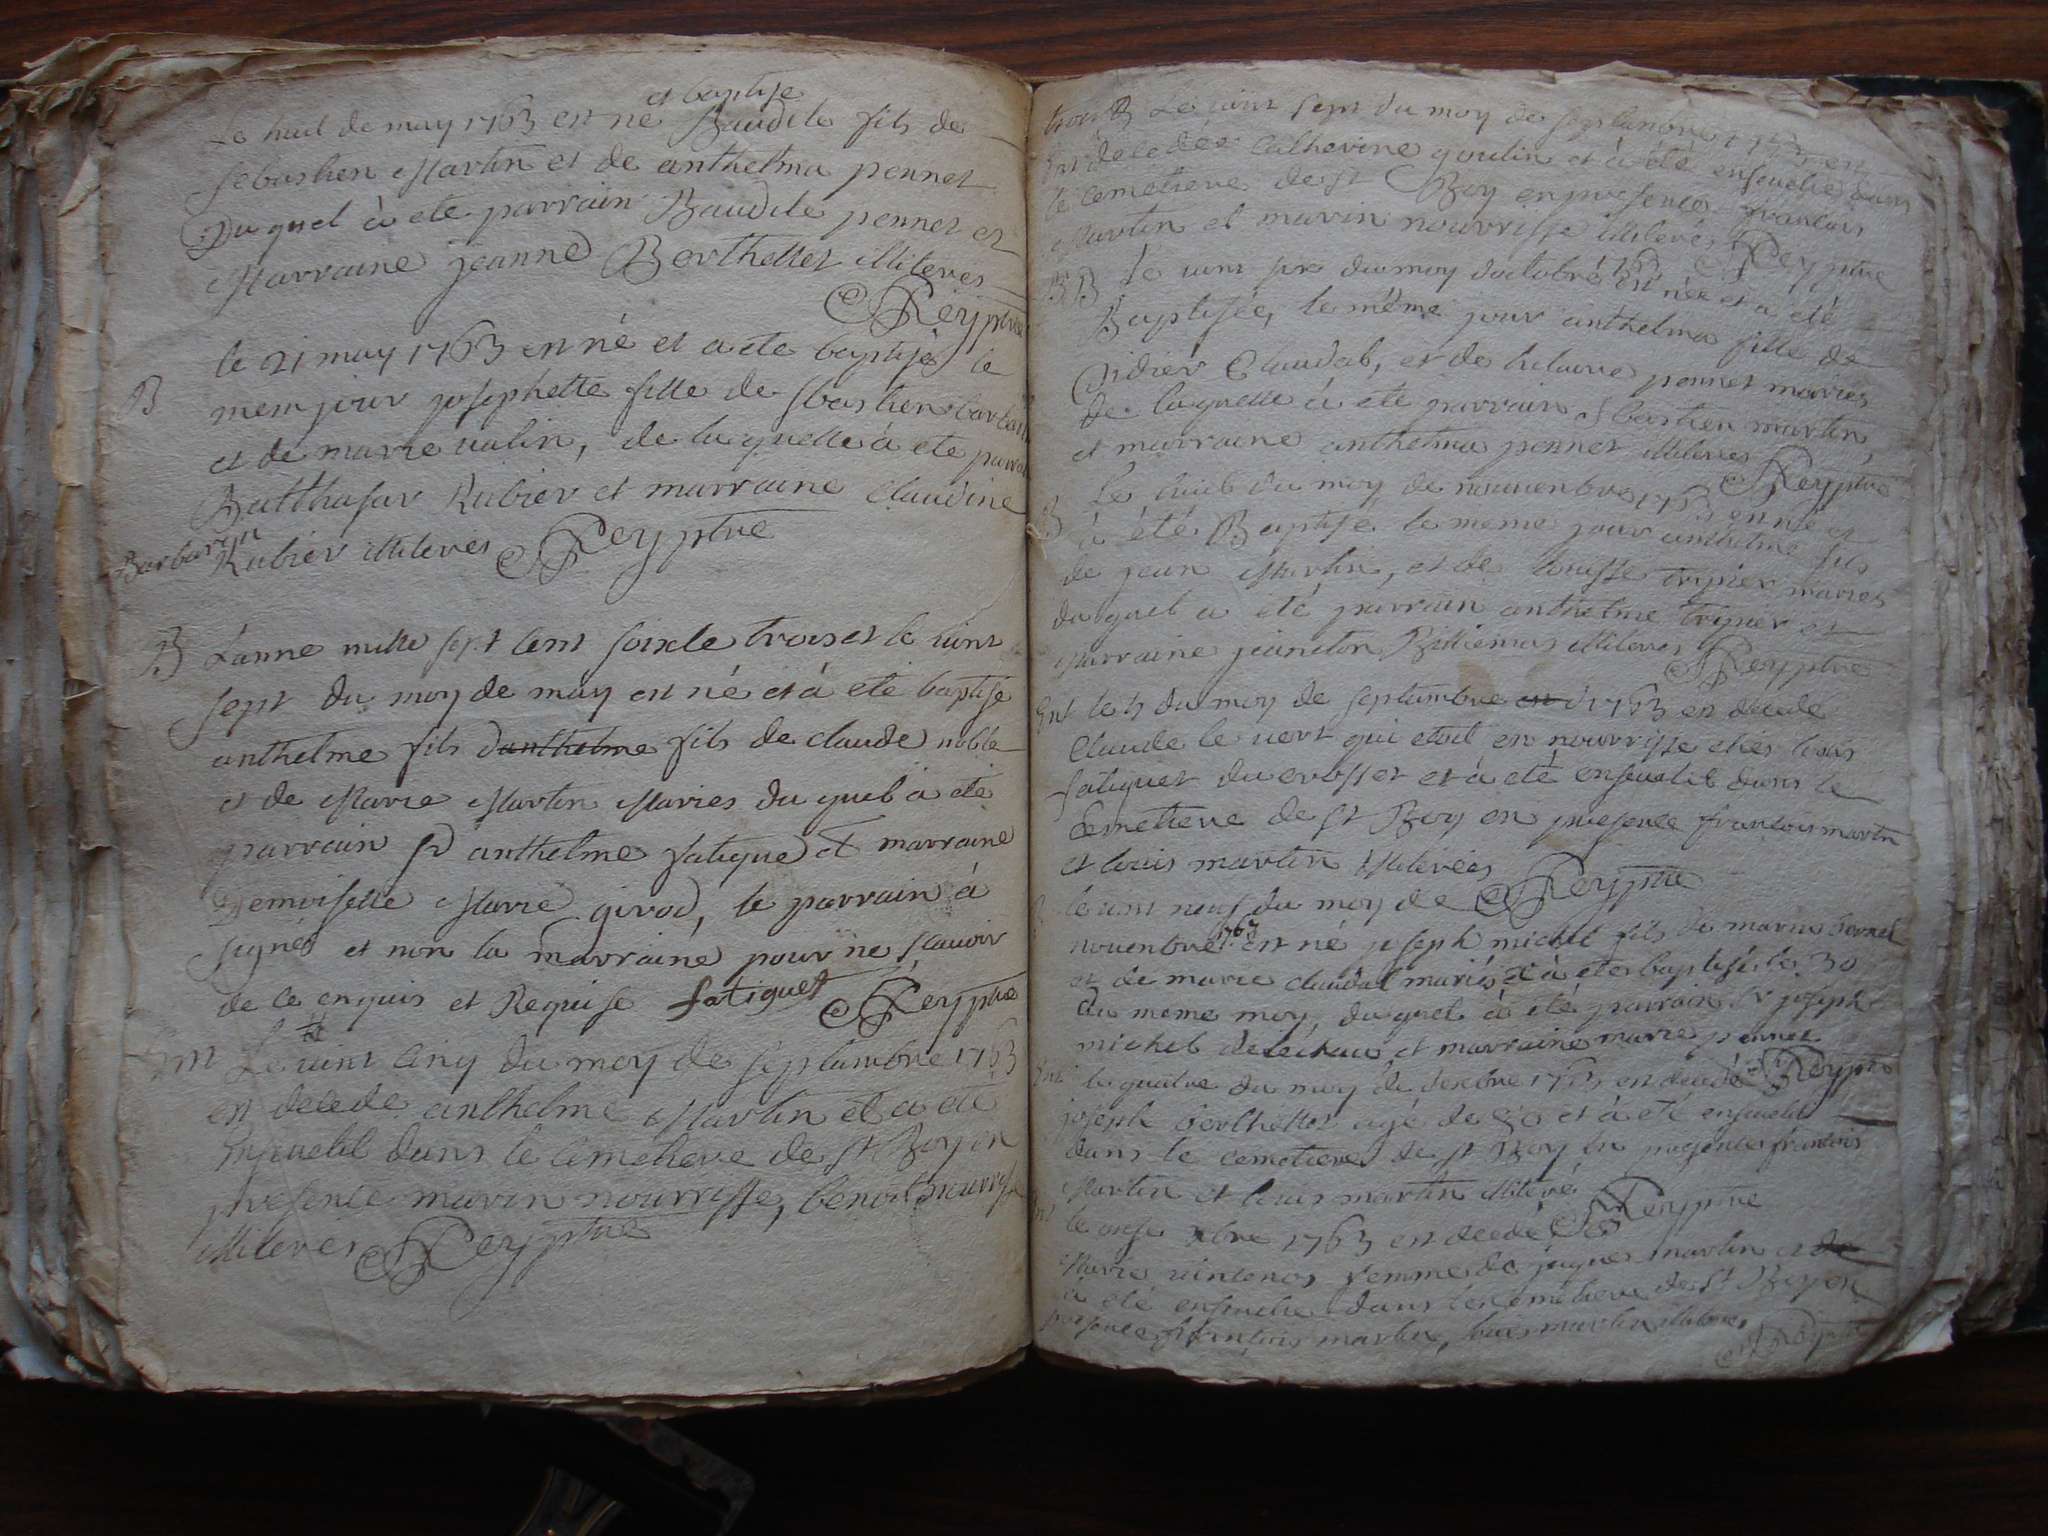 et baptise
Le huit de may 1763 est né Baudile fils de
Sebastien Martin et de anthelma pennet
Duquel à eté parrain Baudile pennet et
Marraine jeanne Berthettet illiteres
Rey ptre
le 21 may 1763 est né et a ete baptise le
B
mem jour josephette fille de Sbastien barbarin
et de marie valin, de la quelle à ete parrai
Balthasar Rubier et marraine claudine
Barbarin
Rubier illiteres Rey ptre
B L'anne mille sept cent soixte trois et le vint
sept du moy de may est né et à eté baptise
anthelme fils d'anthelme fils de claude noble
et de Marie Martin Maries du quel à eté
parrain Sr anthelme fatigue et marraine
Demoiselle Marie girod, le parrain à
signé et non la marraine pour ne scavoir
de ce enquis et Requise fatiguet Rey ptre
Ent Le vint cinq du moy de septambre 1763
est decede anthelme Martin et a eté
ensevelit dans le cimetiere de St Boy en
presence marin nourrisse, benoit nourrisse
illiteres Rey ptre
B Le vint sept du moy de septambre 1763 est
Ent decedee Catherine goulin et à été ensevelie dans
le cemetiere de St Boy en presence francois
Martin et marin nourrisse illiteres Rey ptre
B Le vint du moy d'octobre 1763 est née et a été
Baptisée, le même jour anthelma fille de
Didier Claudal, et de hilaire pennet maries
de laquelle à eté parrain Sbastien martin,
et marraine anthelma pennet illiteres Rey ptre
Le huit du moy de nouvenbre 1763 est né et
B à été Baptisé le meme jour anthelme fils
de jean Martin, et de louisse tripier maries
du quel a été parrain anthelme tripier et
Marraine jeaneton Billiemas illiteres
Rey ptre
Ent le du moy de septambre 1763 est decede
Claude le vert qui etoit en nourrisse chés louis
fatiguet du crosset et à eté ensevelit dans le
Cemetiere de St Boy en presence francois martin
et louis martin illiterés Rey ptre
le vint neuf du moy de
nouenbre 1763 est né joseph michel fils de marin
et de marie claudal mariés et à eté baptisé le 30
du meme moy, du quel à été parrain Sr joseph
michel et marraine marie pennet
Ent le quatre du moy de decebre 1763 est decedé Rey ptre
joseph berthettet agé de 50 et à eté ensevelit
dans le cemetiere de St Boy en presence francois
Martin et louis martin illiteré Rey ptre
Ent le onse xbre 1763 est decedé
Marie vintenos femme de jaques martin et de
à eté ensevelie dans le cemetiere de St Boy en
presence francois martin, louis martin illiteres
Rey ptre